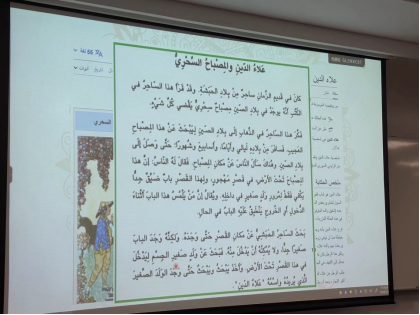 علاء الدين والمصباح السحري
كان في قديم الزمان ساحر من بلاد الحبشة. وقد قرأ هذا الساحر في
الكتب أنه يوجد في بلاد الصين مصباح سحري يقضي كل شيء.
فكر هذا الساحر في الذهاب إلى بلاد الصين ليبحث عن هذا المصباح
العجيب. فسافر من بلاده ليالي وأياما، وأسابيع وشهورا؛ حتى وصل إلى
بلاد الصين. وهناك سأل الناس عن مكان المصباح. فقال له الناس: إن هذا
المصباح تحت الأرض، في قصر مهجور، ولهذا القصر باب ضيق جدا
يكفي فقط لمرور ولد صغير في داخله. ويقال إن من يلمس هذا الباب أثناء
الدخول أو الخروج ينغلق عليه الباب في الحال.
بحث الساحر الحبشي عن مكان القصر حتى وجده. ولكنه وجد الباب
صغيرا جدا، ولا يمكنه أن يدخل منه. فبحث عن ولد صغير الجسم ليدخل
في هذا القصر تحت الأرض. وأخذ يبحث ويبحث حتى وجد الولد الصغير
الذي يريده واسمه "علاء الدين".
علاء الدين
السحري